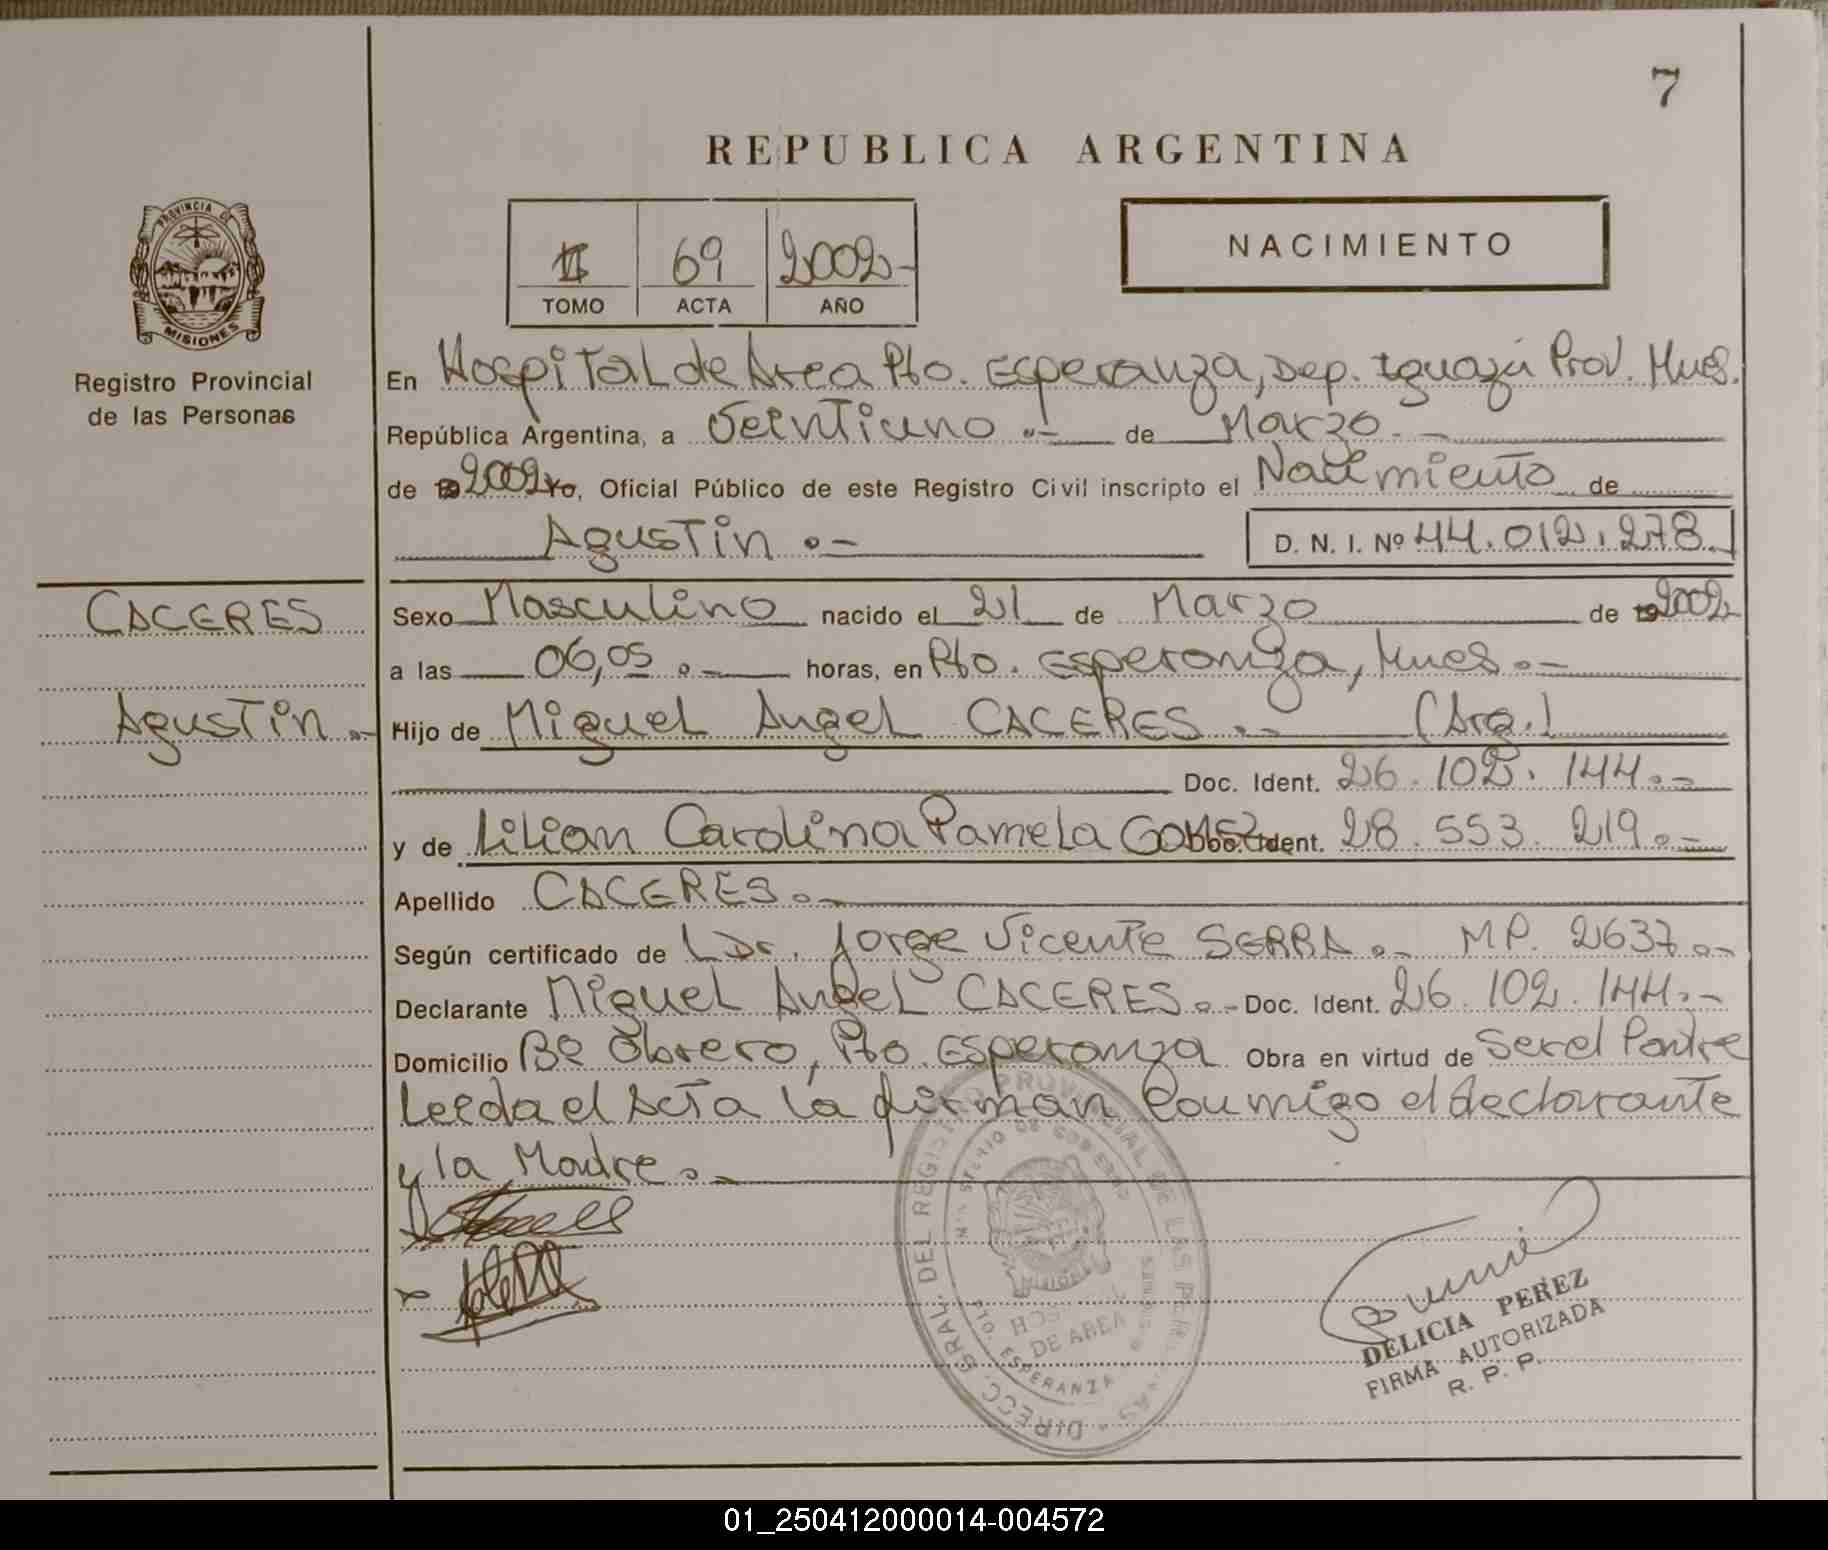 7
REPUBLICA ARGENTINA
PROVINCIA DE
MISIONES
Registro Provincial
de las Personas
II 69 2002-
TOMO ACTA AÑO
NACIMIENTO
En Hospital de Area Pto. Esperanza, Dep. Iguazú Prov. Mnes.
República Argentina, a Veintiuno .- de Marzo. -
de 19 2002 Yo, Oficial Público de este Registro Civil inscripto el Nacimiento de
Agustin .- D. N. I. Nº 44.012.278.
CACERES
Agustin .-
Sexo Masculino nacido el 21 de Marzo de 19 2002
a las 06,05 .- horas, en Pto. Esperanza, Mnes. -
Hijo de Miguel Angel CACERES .- (Arg.)
Doc. Ident. 26.102.144.-
y de Lilian Carolina Pamela Doc. Ident. 28.553.219.-
Apellido CACERES.-
Según certificado de L Dr. Jorge Vicente SERRA.- M.P. 2637.-
Declarante Miguel Angel CACERES.- Doc. Ident. 26.102.144.-
Domicilio Bº Obrero, Pto. Esperanza Obra en virtud de Ser el Padre
Leida el Acta la firman conmigo el declarante
y la Madre.-
DIRECC. GRAL. DEL REGISTRO PROVINCIAL DE LAS PERSONAS
MINISTERIO DE GOBIERNO
MISIONES
HOSPITAL
DE AREA
PTO. ESPERANZA
DELICIA PEREZ
FIRMA AUTORIZADA
R. P. P.
01_250412000014-004572